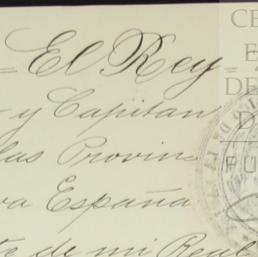 = El Rey =
y Capitan
las Provinc
va España
te de mi Real
CE
E
DE
D
FU